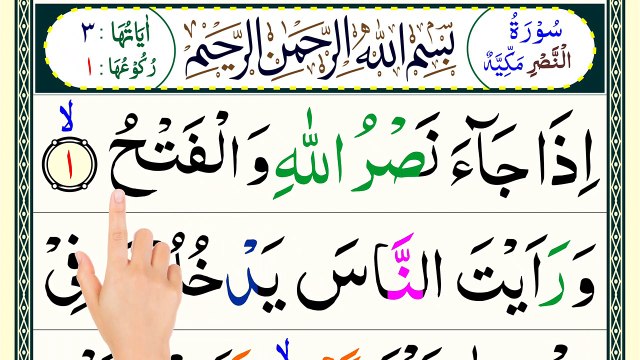 سُوْرَةُ
النَّصْرِ مَكِّيَّةٌ
بِسْمِ اللهِ الرَّحْمٰنِ الرَّحِيْمِ
اٰيَاتُهَا : ٣
رُكُوْعُهَا : ١
اِذَا جَآءَ نَصْرُ اللّٰهِ وَالْفَتْحُ ۙ ١
وَرَاَيْتَ النَّاسَ فِيْ